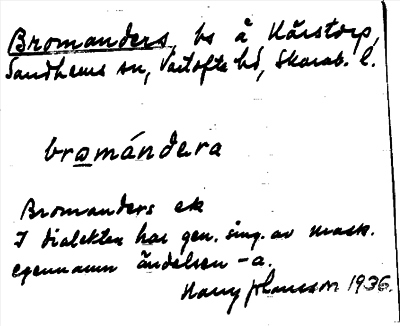 Bromanders, bs å Kårstorp,
Sandhems sn, Vartofta hd, Skarab. l.
bromándera
Bromanders etc
I dialekten har gen. sing. av mask.
egennamn ändelsen -a.
Harry Jhansson 1936.